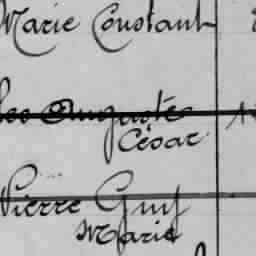 Marie Constant
Auguste
César
Pierre Guy
Marie